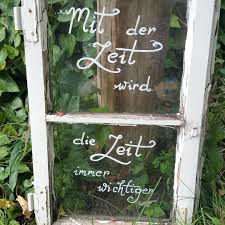 Mit der
Zeit
wird
die Zeit
immer
wichtiger